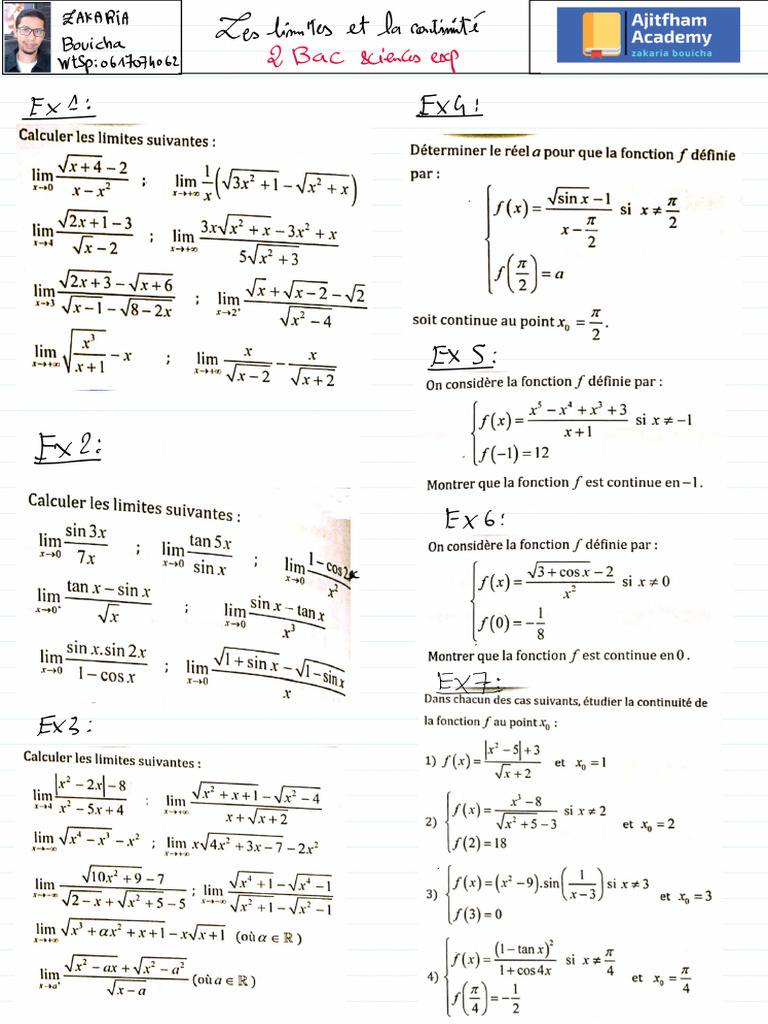 ZAKARIA
Bouicha
WtSp: 0617074062
Les limites et la continuité
2 Bac sciences exp
Ajitfham
Academy
zakaria bouicha
Ex 1:
Calculer les limites suivantes :
lim x→0 (√(x+4) − 2)/(x − x²) ; lim x→+∞ 1/x (√(3x²+1) − √(x²+x))
lim x→4 (√(2x+1) − 3)/(√x − 2) ; lim x→+∞ (3x√(x²+x) − 3x² + x)/(5√(x²+3))
lim x→3 (√(2x+3) − √(x+6))/(√(x−1) − √(8−2x)) ; lim x→2⁺ (√x + √(x−2) − √2)/√(x²−4)
lim x→+∞ √(x³/(x+1)) − x ; lim x→+∞ x/√(x−2) − x/√(x+2)
Ex 2:
Calculer les limites suivantes :
lim x→0 sin 3x/7x ; lim x→0 tan 5x/sin x ; lim x→0 (1 − cos 2x)/x²
lim x→0⁺ (tan x − sin x)/√x ; lim x→0 (sin x − tan x)/x³
lim x→0 (sin x.sin 2x)/(1 − cos x) ; lim x→0 (√(1+sin x) − √(1−sin x))/x
Ex3:
Calculer les limites suivantes :
lim x→4 (|x² − 2x| − 8)/(x² − 5x + 4) : lim x→+∞ (√(x²+x+1) − √(x²−4))/(x + √(x+2))
lim x→−∞ √(x⁴ − x³) − x² ; lim x→+∞ x√(4x²+3x−7) − 2x²
lim x→−∞ (√(10x²+9) − 7)/(√(2−x) + √(x²+5) − 5) ; lim x→−∞ (√(x⁴+1) − √(x⁴−1))/(√(x²+1) − √(x²−1))
lim x→+∞ √(x³+αx²+x+1) − x√(x+1) (où α ∈ ℝ)
lim x→a⁺ (√(x²−ax) + √(x²−a²))/√(x−a) (où a ∈ ℝ)
Ex4:
Déterminer le réel a pour que la fonction f définie
par :
f(x) = (√(sin x) − 1)/(x − π/2) si x ≠ π/2
f(π/2) = a
soit continue au point x₀ = π/2.
Ex 5:
On considère la fonction f définie par :
f(x) = (x⁵ − x⁴ + x³ + 3)/(x+1) si x ≠ −1
f(−1) = 12
Montrer que la fonction f est continue en −1.
Ex6:
On considère la fonction f définie par :
f(x) = (√(3+cos x) − 2)/x² si x ≠ 0
f(0) = −1/8
Montrer que la fonction f est continue en 0.
Ex7:
Dans chacun des cas suivants, étudier la continuité de
la fonction f au point x₀ :
1) f(x) = (|x² − 5| + 3)/(√x + 2) et x₀ = 1
2) f(x) = (x³ − 8)/(√(x²+5) − 3) si x ≠ 2
f(2) = 18 et x₀ = 2
3) f(x) = (x² − 9).sin(1/(x−3)) si x ≠ 3
f(3) = 0 et x₀ = 3
4) f(x) = (1 − tan x)²/(1 + cos 4x) si x ≠ π/4
f(π/4) = −1/2 et x₀ = π/4